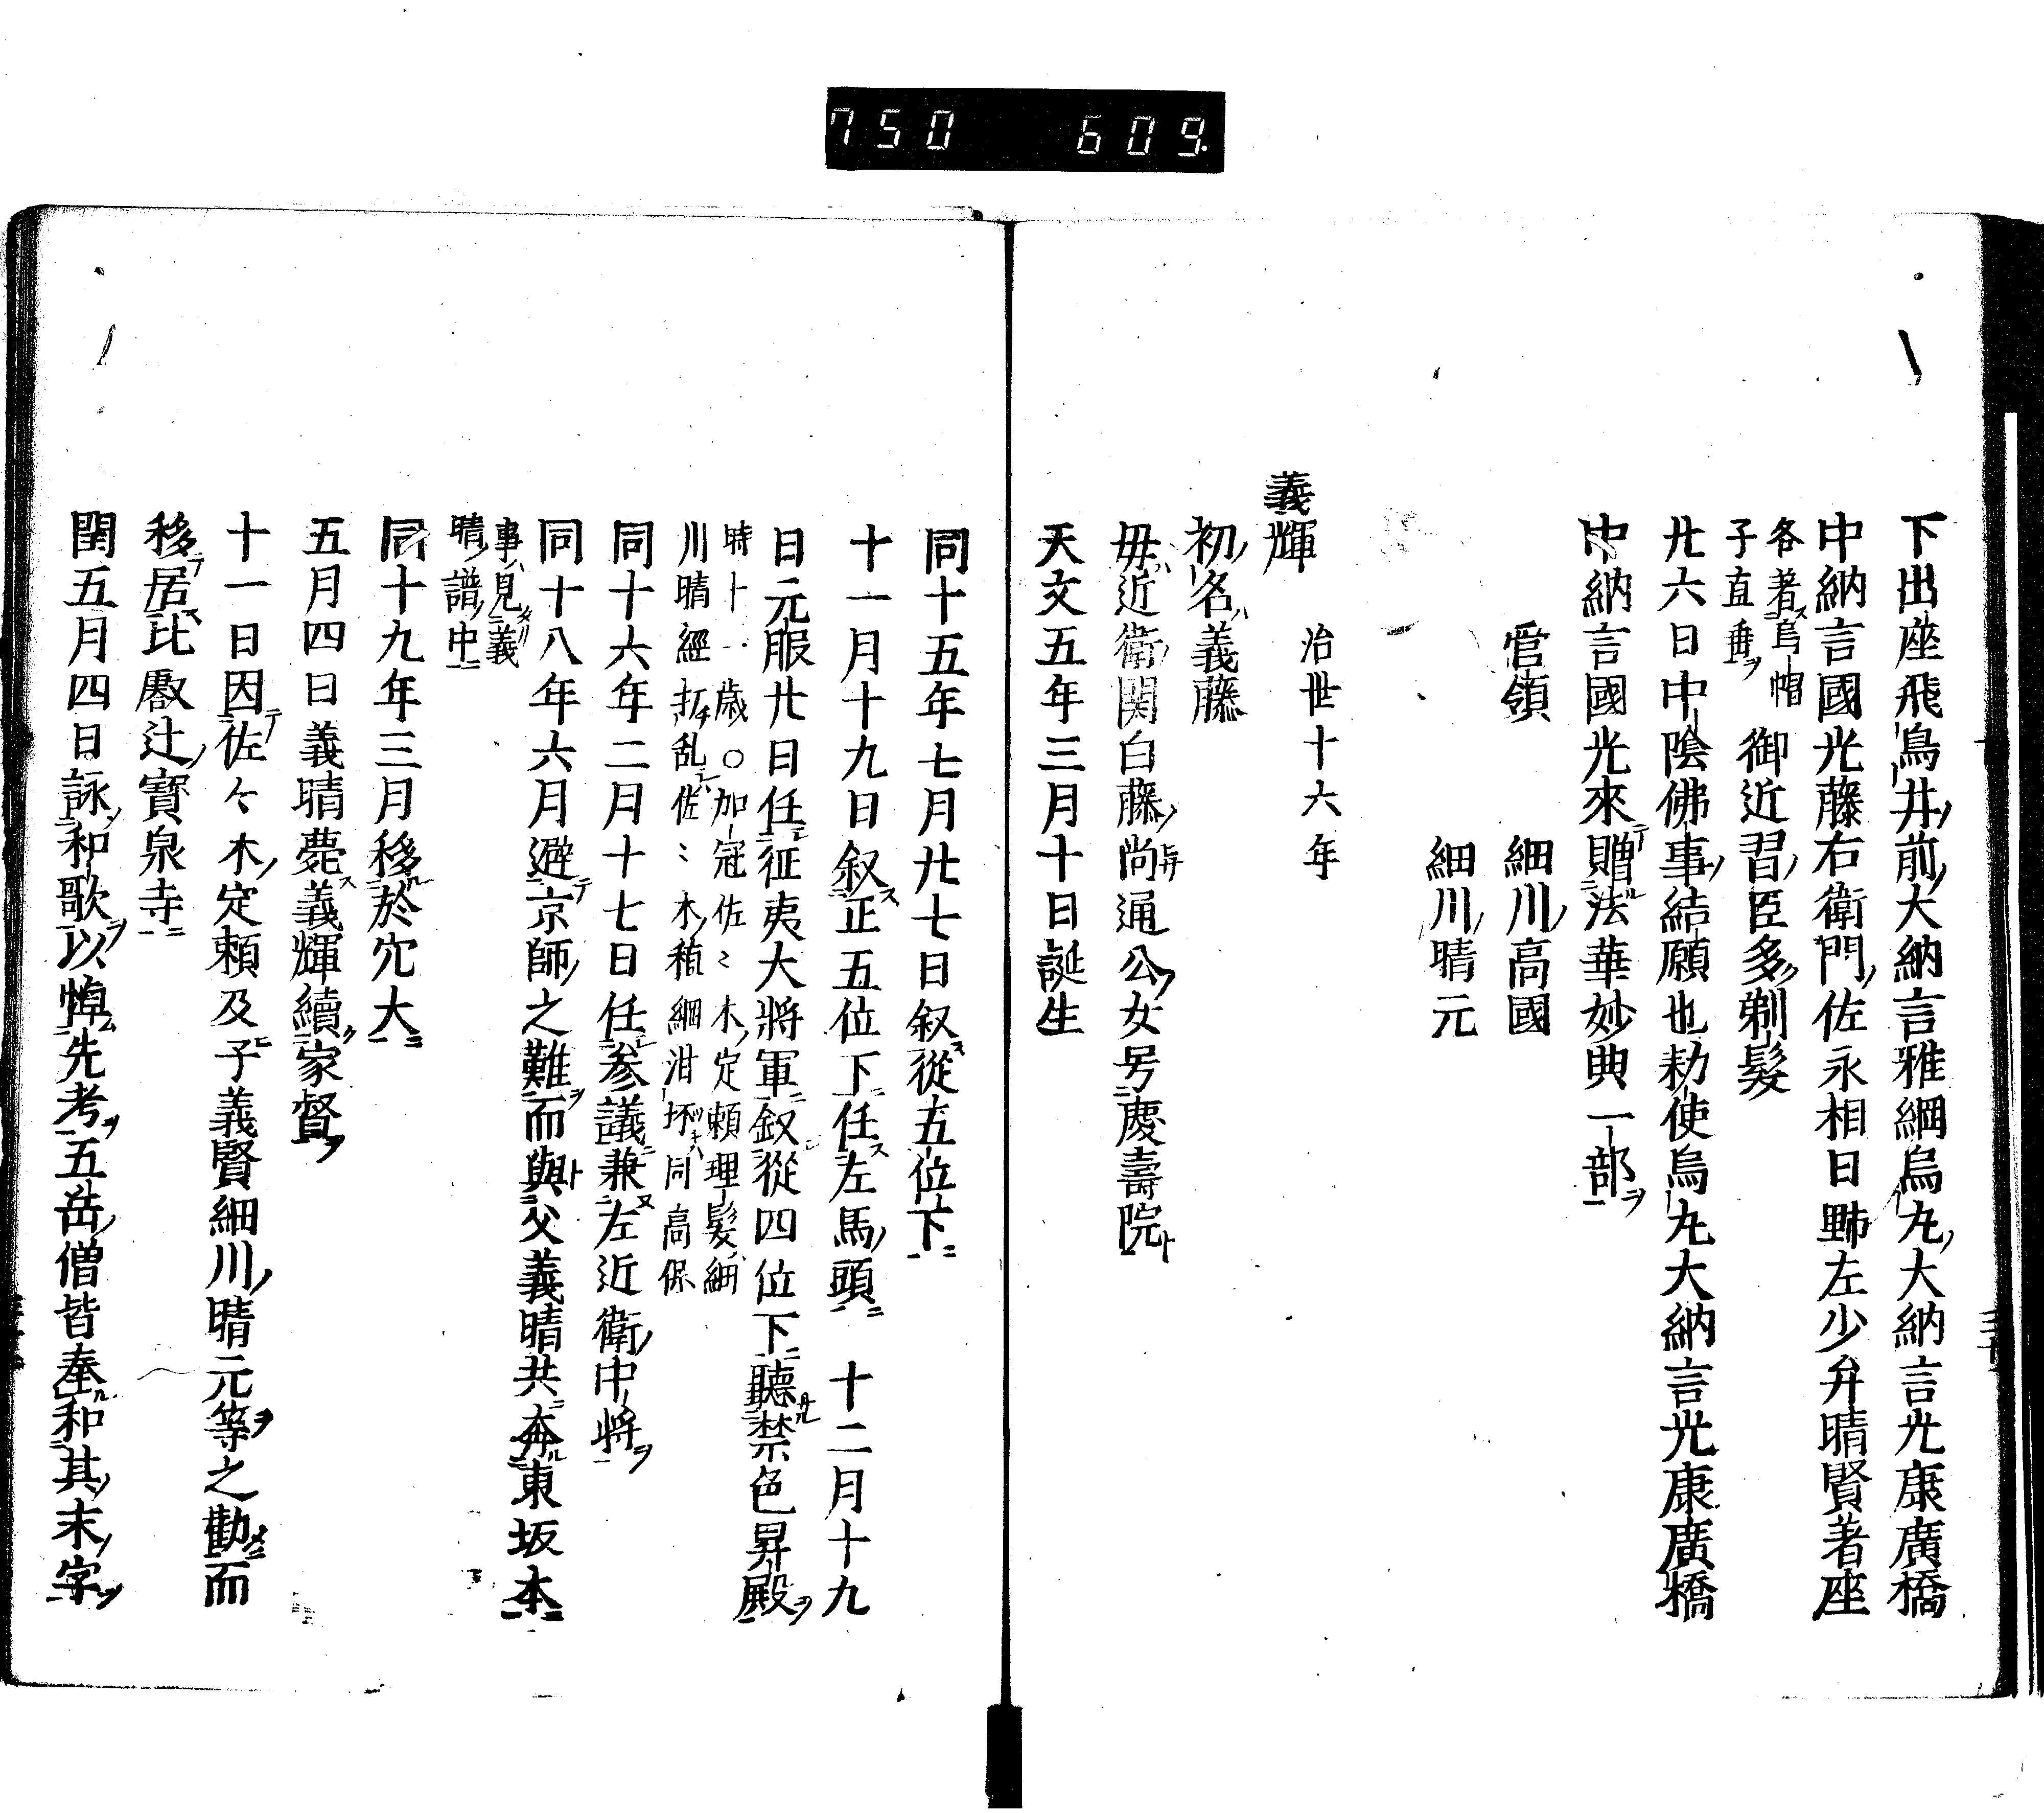 750 609.
下出座飛鳥井前大納言雅綱烏丸大納言光康廣橋
中納言國光藤右衛門佐永相日野左少弁晴賢著座
各著烏帽
子直垂
御近習臣多剃髮
廿六日中陰佛事結願也勅使烏丸大納言光康廣橋
中納言國光來贈法華妙典一部
管領 細川高國
細川晴元
義輝
治世十六年
初名義藤
毋近衛関白藤尚通公女号慶壽院
天文五年三月十日誕生
同十五年七月廿七日叙從五位下
十一月十九日叙正五位下任左馬頭 十二月十九
日元服廿日任征夷大将軍叙從四位下聽禁色昇殿
時十一歳〇加冠佐々木定頼理髮細
川晴經打乱佐々木稙綱泔坏同高保
同十六年二月十七日任参議兼左近衛中将
同十八年六月避京師之難而與父義晴共奔東坂本
事見義
晴譜中
同十九年三月移於穴大
五月四日義晴薨義輝續家督
十一日因佐々木定頼及子義賢細川晴元等之勸而
移居比叡辻寳泉寺
閏五月四日詠和歌以悼先考五岳僧皆奉和其末字